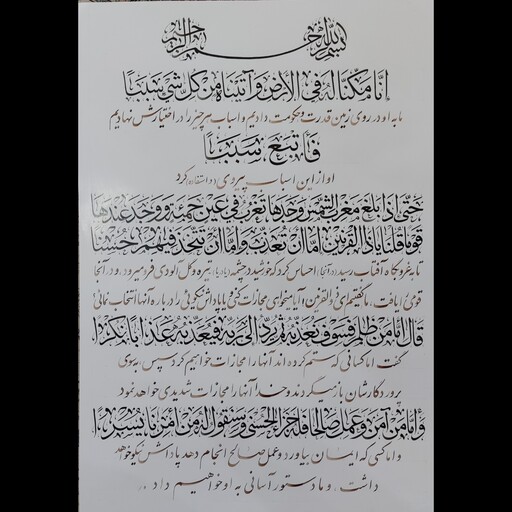 بسم الله الرحمن الرحیم
انا مکنا له فی الارض و آتیناه من کل شی سببا
ما به او در روی زمین قدرت و حکومت دادیم و اسباب هر چیز را در اختیارش نهادیم
فأتبع سببا
او از این اسباب پیروی (و استفاده) کرد
حتی اذا بلغ مغرب الشمس وجدها تغرب فی عین حمئة و وجد عندها
قوما قلنا یا ذا القرنین اما ان تعذب و اما ان تتخذ فیهم حسنا
تا به غروبگاه آفتاب رسید (در آنجا) احساس کرد که خورشید در چشمه (یا دریا) تیره و گل آلودی فرو میرود و در آنجا
قومی را یافت، ما گفتیم ای ذوالقرنین و آیا میخواهی مجازات کنی و یا پاداش نیکوئی را درباره آنها انتخاب نمائی
قال اما من ظلم فسوف نعذبه ثم یرد الی ربه فیعذبه عذابا نکرا
گفت اما کسانی که ستم کرده اند آنها را مجازات خواهیم کرد سپس بسوی
پروردگارشان باز میگردند و خدا آنها را مجازات شدیدی خواهد نمود
و اما من آمن و عمل صالحا فله جزاء الحسنی و سنقول له من امرنا یسرا
و اما کسی که ایمان بیاورد و عمل صالح انجام دهد پاداش نیکو خواهد
داشت و ما دستور آسانی به او خواهیم داد